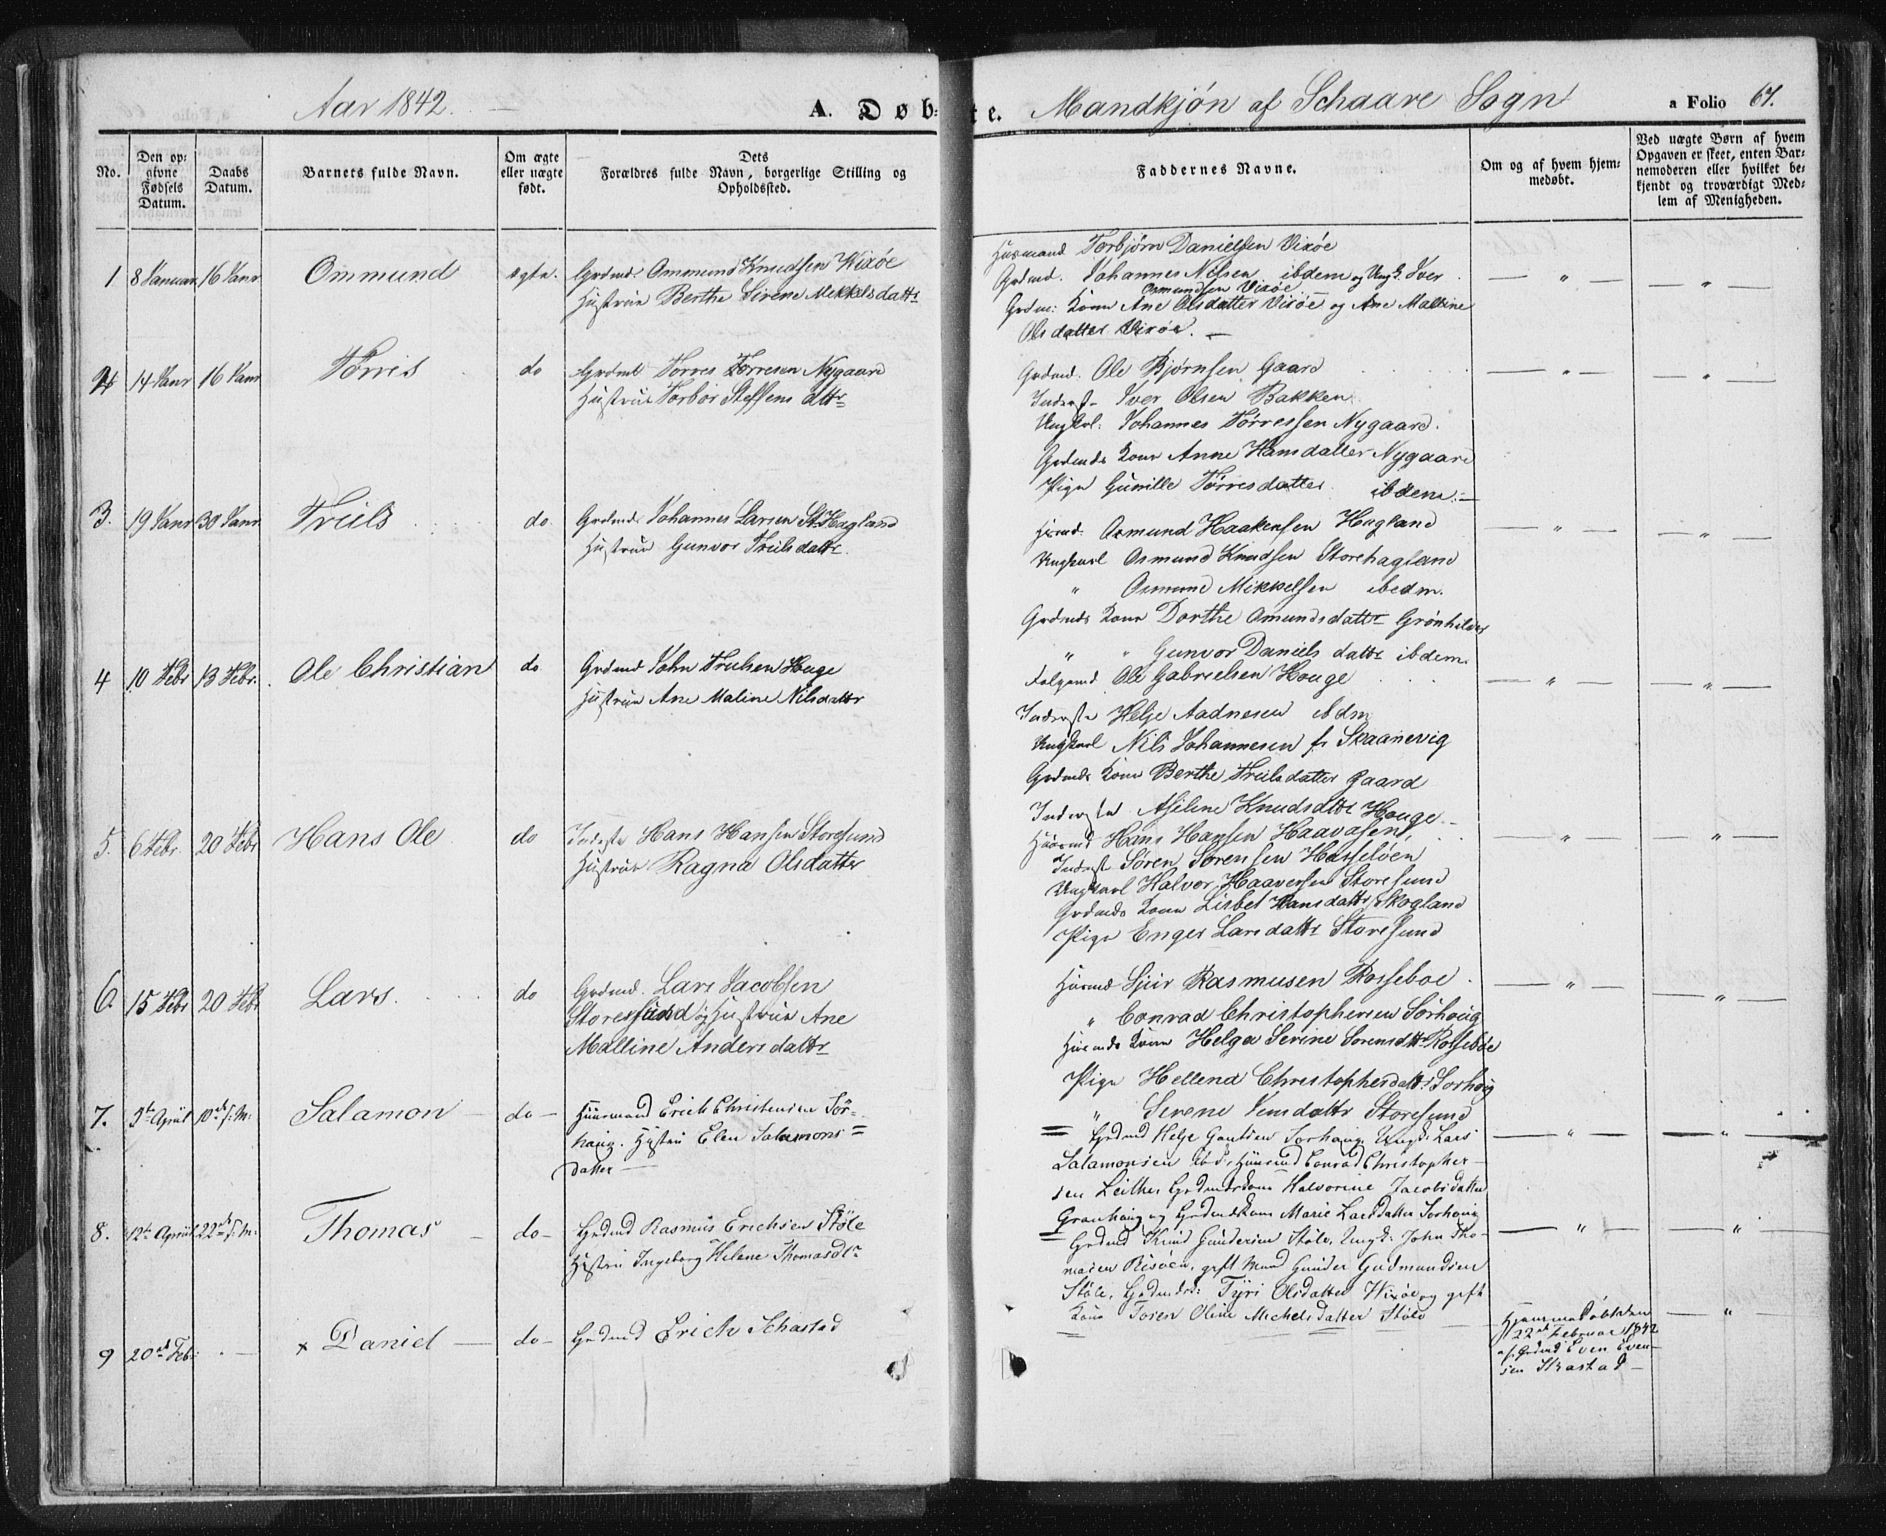 Aar 1842.
A. Døb-
te.
Mandkjøn af Schaare Sogn
a Folio 67.
No.
Den op-
givne
Fødsels
Datum.
Daabs
Datum.
Barnets fulde Navn.
Om ægte
eller uægte
født.
Dets
Forældres fulde Navn, borgerlige Stilling og
Opholdsted.
Faddernes Navne.
Om og af hvem hjem-
medøbt.
Ved uægte Børn af hvem
Opgaven er skeet, enten Bar-
nemoderen eller hvilket be-
kjendt og troværdigt Med-
lem af Menigheden.
1 8 Januar 16 Janr Ommund ægte. Grdmd Ommund Knudsen Wixøe
Hustrue Berthe Sirene Mekkelsdattr
Husmand Torbjørn Danielsen Vixøe
Grdmd. Johannes Nilsen ibdem og Ungk. Iver
Osmundsen Vixøe
Grdm: Kone Ane Olsdatter Vixøe og Ane Malline
Olsdatter Vixøe.
— " —
— " —
2 14 Janr 16 Janr Tørris do Grdmd Torres Torresen Nygaard
Hustrue Torbor Steffens dttr
Grdmd. Ole Bjørnsen Gaard
Inderst Iver Olsen Bakken
Ungkrl. Johannes Tørressen Nygaard.
Grdmds Kone Anne Hansdatter Nygaard
Pige Gunille Tørresdatter ibdem.
— " —
— " —
3. 19 Janr 30 Janr Truls do. Grdmd Johannes Larsen St. Hagland
Hustrue Gunvor Trulsdattr.
Hsmd. Osmund Haakensen Hagland
Ungkarl Osmund Knudsen Storehagland
" Osmund Mikkelsen ibedm.
Grdmds Kone Dorthe Omundsdattr Grønhilder
" " Gunvor Daniels dattr ibdem.
— " —
— " —
4 10 Febr 13 Febr. Ole Christian do Grdmd John Trulsen Houge
Hustrue Ane Maline Nilsdattr
Følgemd Ole Gabrielsen Houge
Inderste Helje Aadnesen ibdm
Ungkarl Nils Johannesen fr Skaanevig
Grdmds Kone Berthe Trulsdatter Gaard
Inderste Asselene Knudsdattr Houge
— " —
— " —
5. 6 Febr. 20 Febr Hans Ole do Inderste Hans Hansen Storesund
Hustrue Ragna Olsdatter
Huusmd Hans Hansen Haavaasen
Inderst Søren Sørensen Hasseløen
Ungkarl Halvor Haaversen Storesund
Grdmds Kone Lisbet Hansdattr Skogland
Pige Enger Larsdattr Storesund
— " —
— " —
6. 15 Febr 20 Febr Lars. do Grdmd. Lars Jacobsen
Storesund og Hustrue Ane
Malline Andersdattr
Huusmd Sjur Rasmusen Rosseboe
" Conrad Christophersen Sørhoug
Huusmds Kone Helga Serine Sorensdttr Rosseboe
Pige Hellene Christophersdattr Sørhoug
" Serene Jensdattr Storesund
— " —
— " —
7. April 10de f. M: Salamon do — Huusmand Erich Christensen Sør-
houg. Hustru Elen Salamons
datter
Grdmd Helje Gautsen Sorhoug, Ungk: Lars
Salamonsen ibd., Huusmd Conrad Christopher
sen Leithe, Grdmdskone Halvorine Jacobsdatter
Gronhoug og Grdmdskone Marie Larsdatter Sorhoug
— " —
— " —
8. 12te April 22de f. M: Thomas do — Grdmd Rasmus Erichsen Støle
Hustru Ingeborg Helene Thomasdtr
Grdmd Knud Gundersen Støle, Ungk: John Tho-
masen Risøen, gift Mand Gunder Gudmundsen
Støle, Grdmdsk: Tyri Olsdatter Wixøe og gift
Kone Toren Oline Michelsdatter Støle
— " —
— " —
9 20de Feb: — x Daniel — do — Grdmd Erich Schastad
Hjemmedøbt den
22de Februar 1842
af Grdmd Even Even-
sen Skastad —
— " —